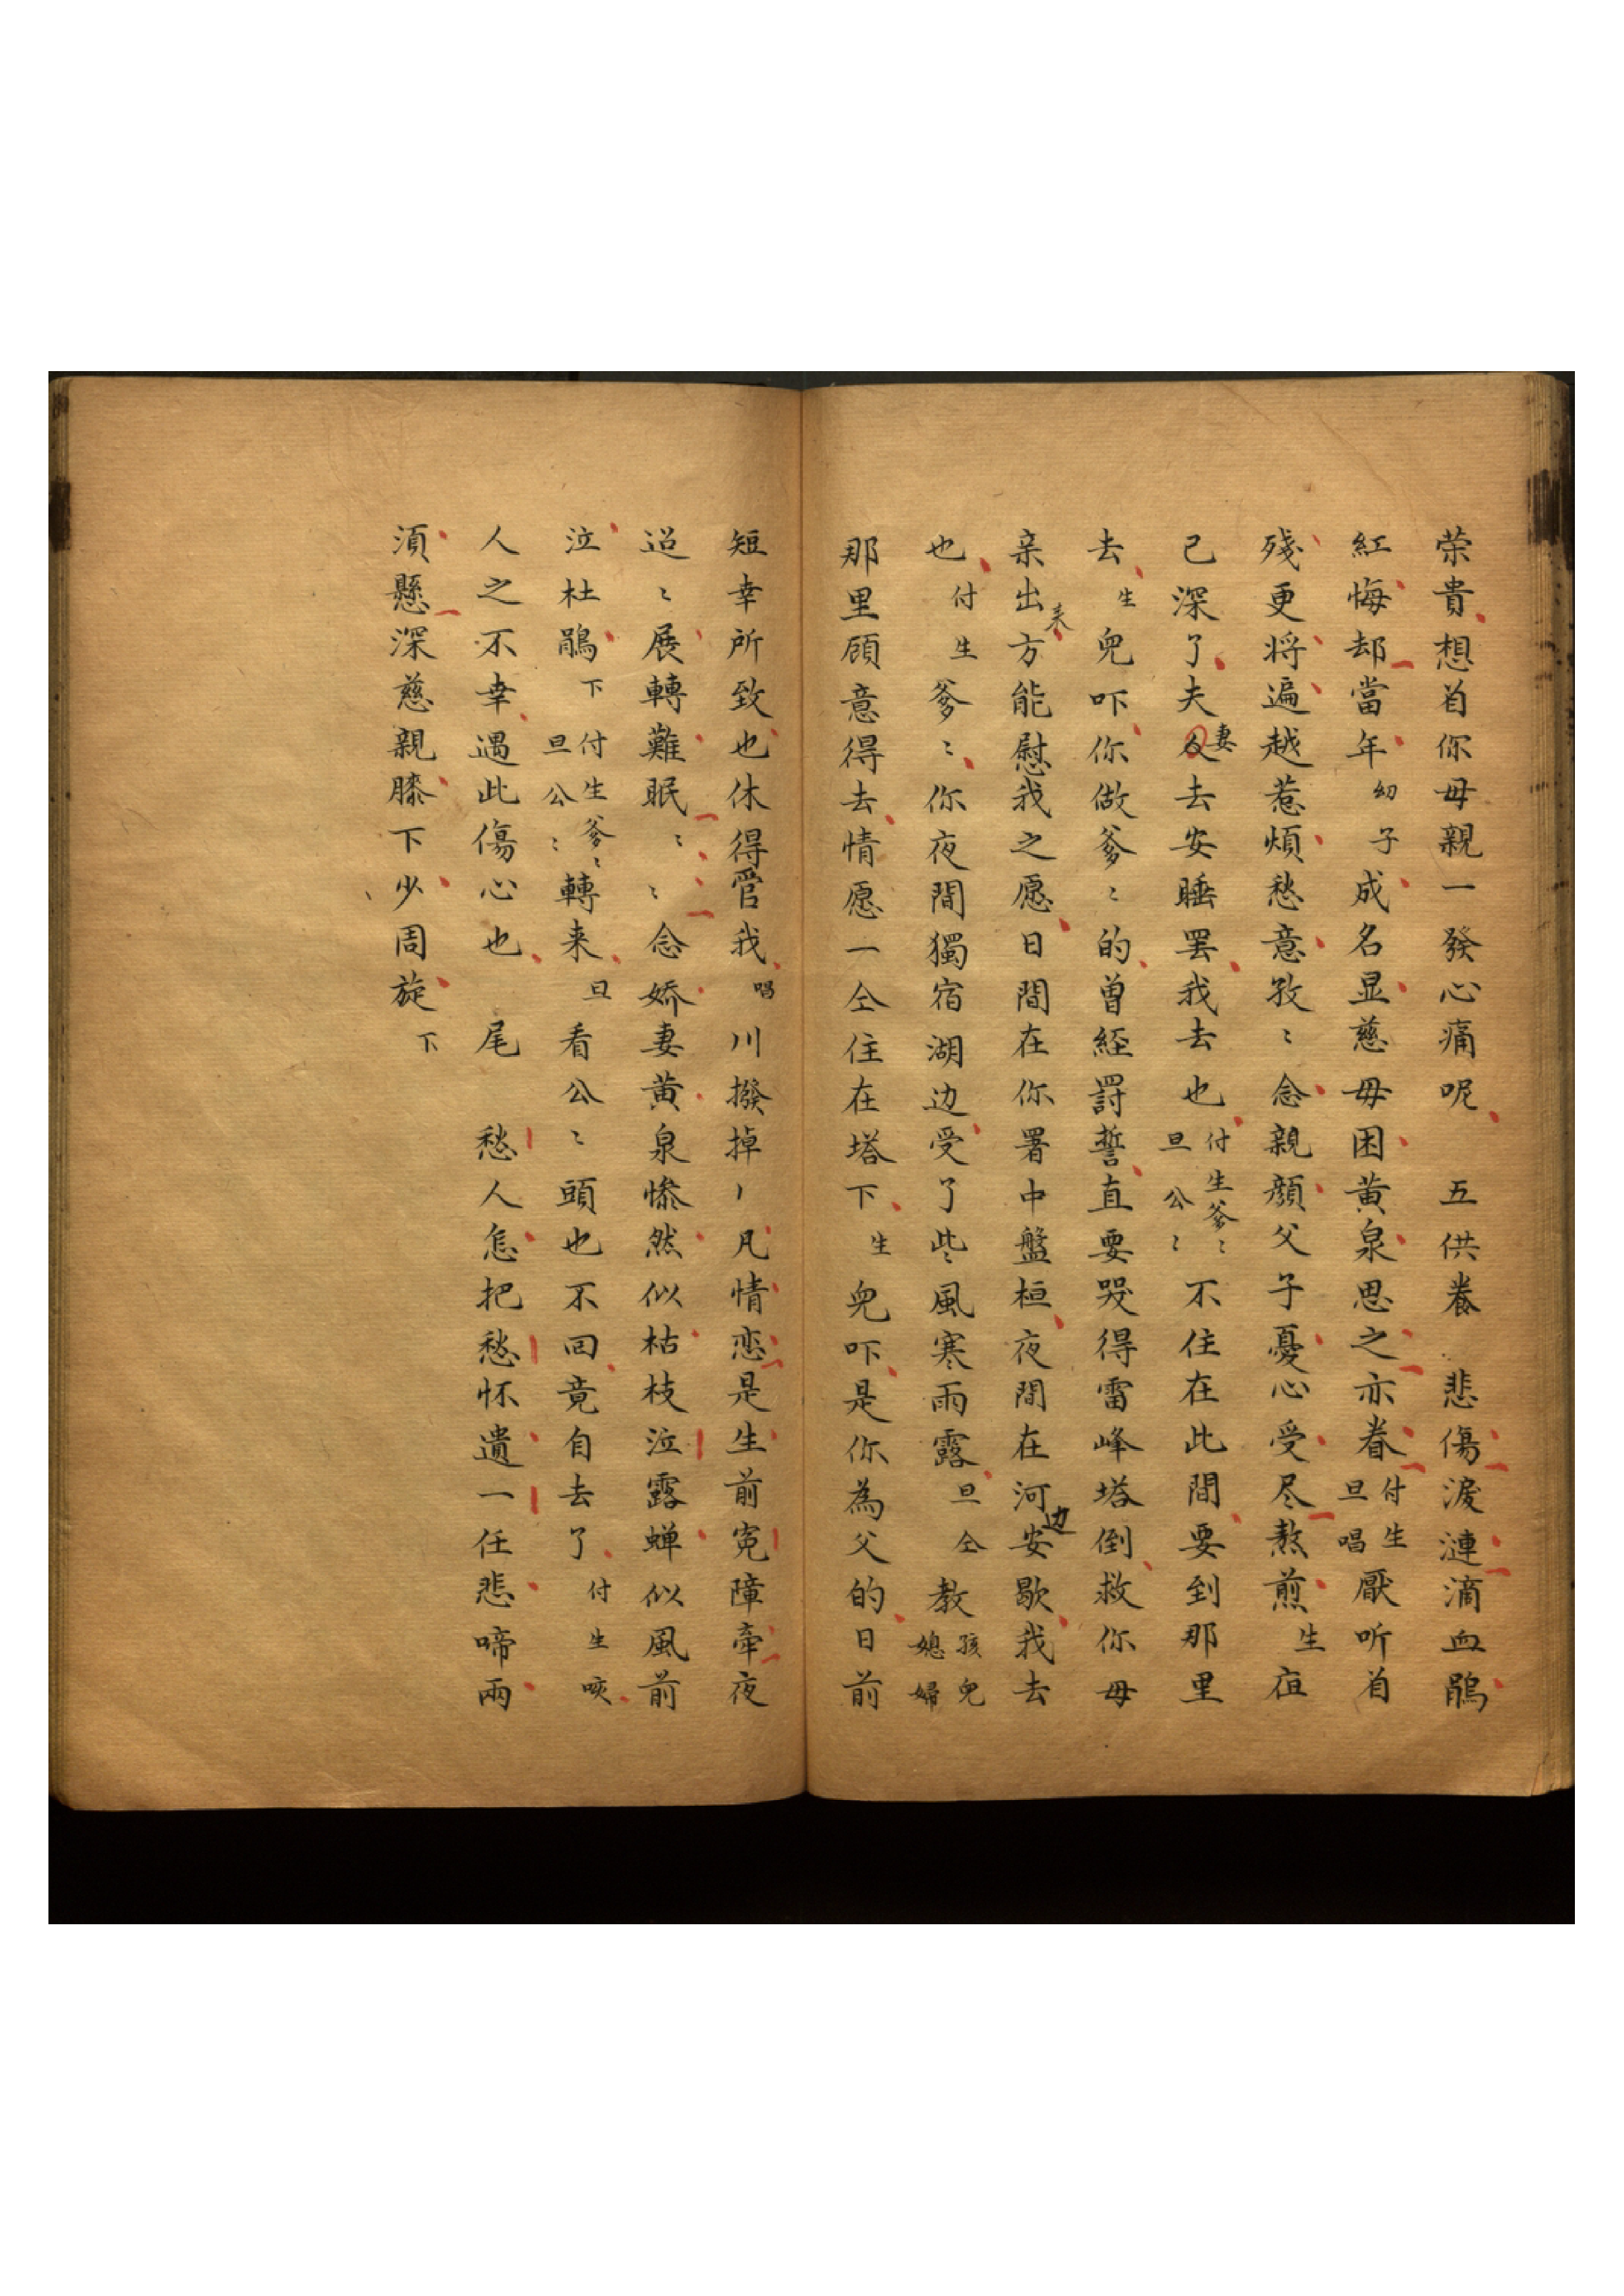 荣貴想首你母親一發心痛呢　五供養　悲傷淚漣滴血鵑
紅悔却當年幼子成名显慈母困黄泉思之亦眷付生旦唱厭听首
殘更将遍越惹煩愁意孜〻念親顔父子憂心受尽熬煎生夜
已深了夫妻去安睡罢我去也付生爹〻旦公〻不住在此間要到那里
去生兒吓你做爹〻的曾経罰誓直要哭得雷峰塔倒救你母
亲出来方能慰我之愿日間在你署中盤桓夜間在河边安歇我去
也付生爹〻你夜間獨宿湖边受了些風寒雨露旦仝教孩兒媳婦
那里顾意得去情愿一仝住在塔下生兒吓是你為父的日前
短幸所致也休得管我唱川撥掉丿凡情恋是生前寃障牽夜
迢〻展轉難眠〻〻念嬌妻黄泉惨然似枯枝泣露蝉似風前
泣杜鵑下付生爹〻旦公〻轉来旦看公〻頭也不回竟自去了付生咳
人之不幸遇此傷心也　尾　愁人怎把愁怀遺一任悲啼兩
須懸深慈親膝下少周旋下